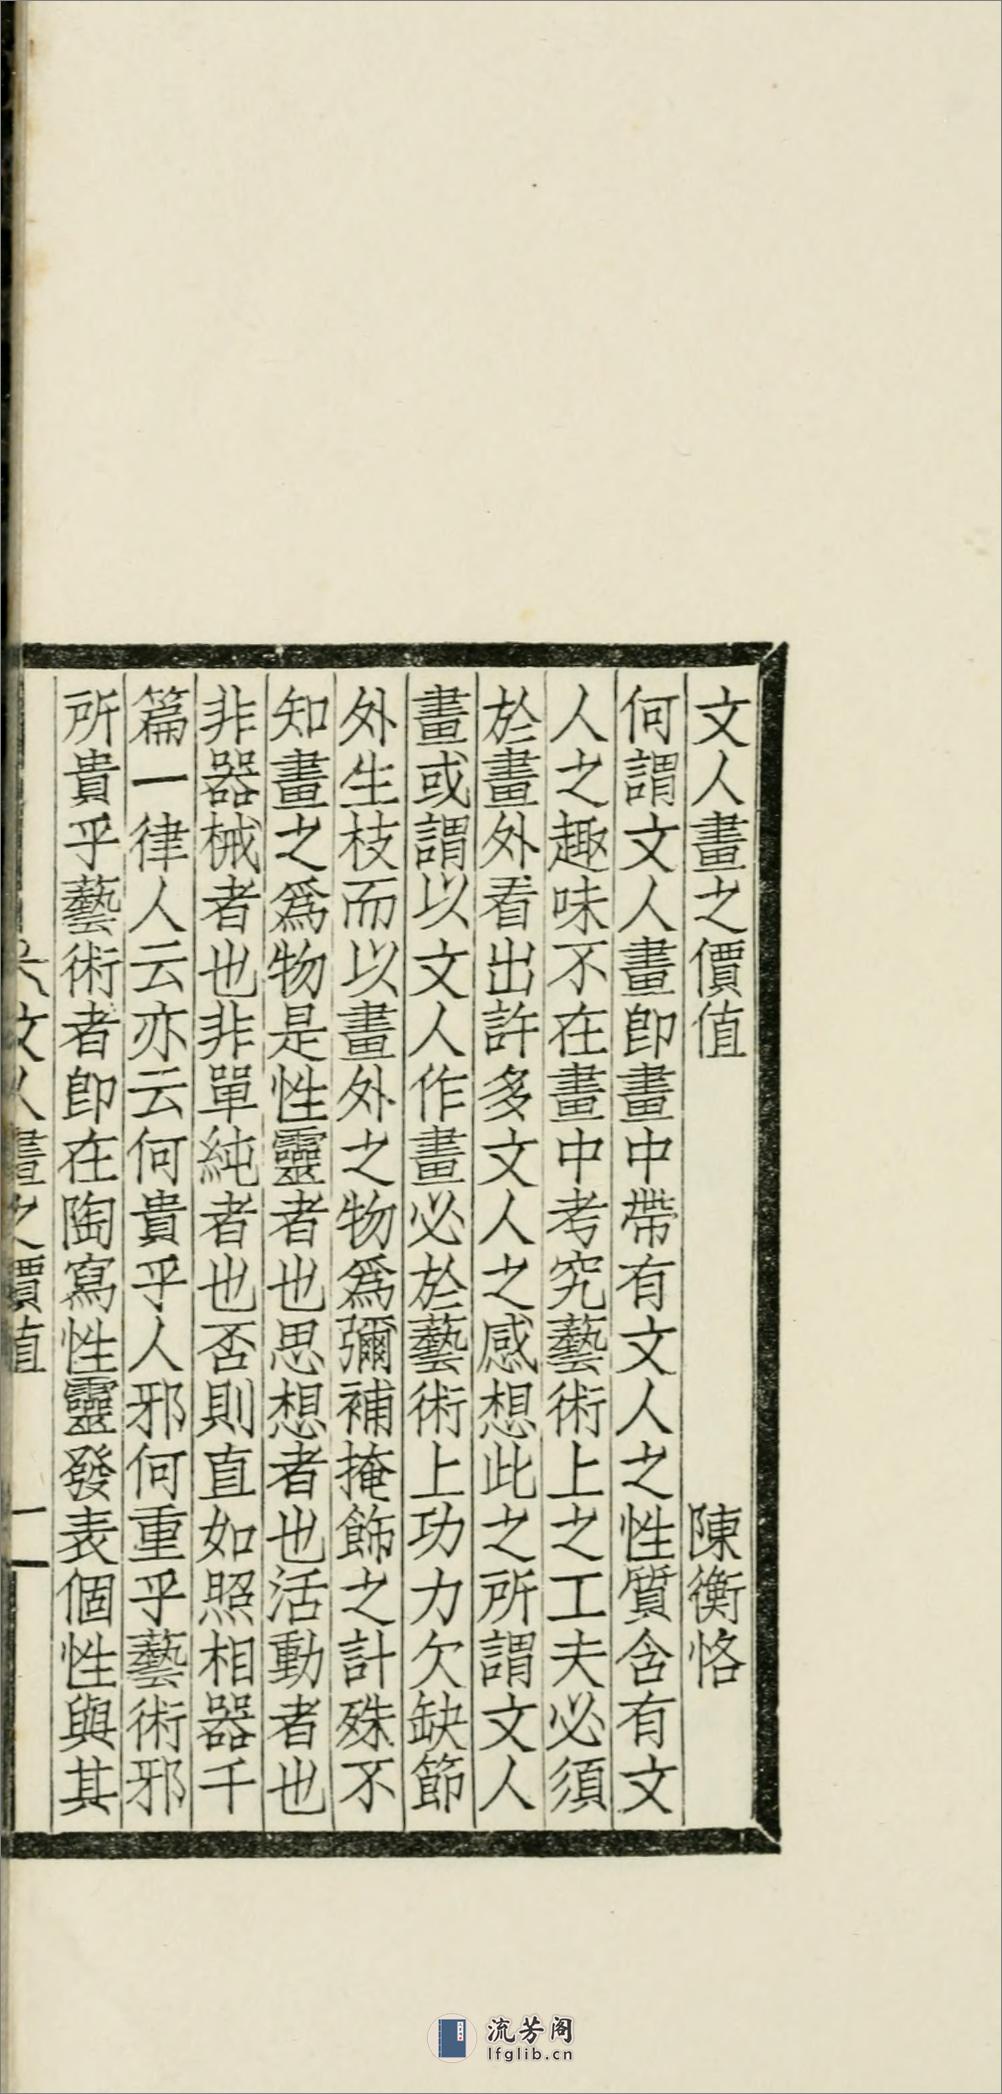 文人畫之價值 陳衡恪
何謂文人畫卽畫中帶有文人之性質含有文
人之趣味不在畫中考究藝術上之工夫必須
於畫外看出許多文人之感想此之所謂文人
畫或謂以文人作畫必於藝術上功力欠缺節
外生枝而以畫外之物爲彌補掩飾之計殊不
知畫之爲物是性靈者也思想者也活動者也
非器械者也非單純者也否則直如照相器千
篇一律人云亦云何貴乎人邪何重乎藝術邪
所貴乎藝術者卽在陶寫性靈發表個性與其
文人畫之價值 一
流芳阁
lfglib.cn